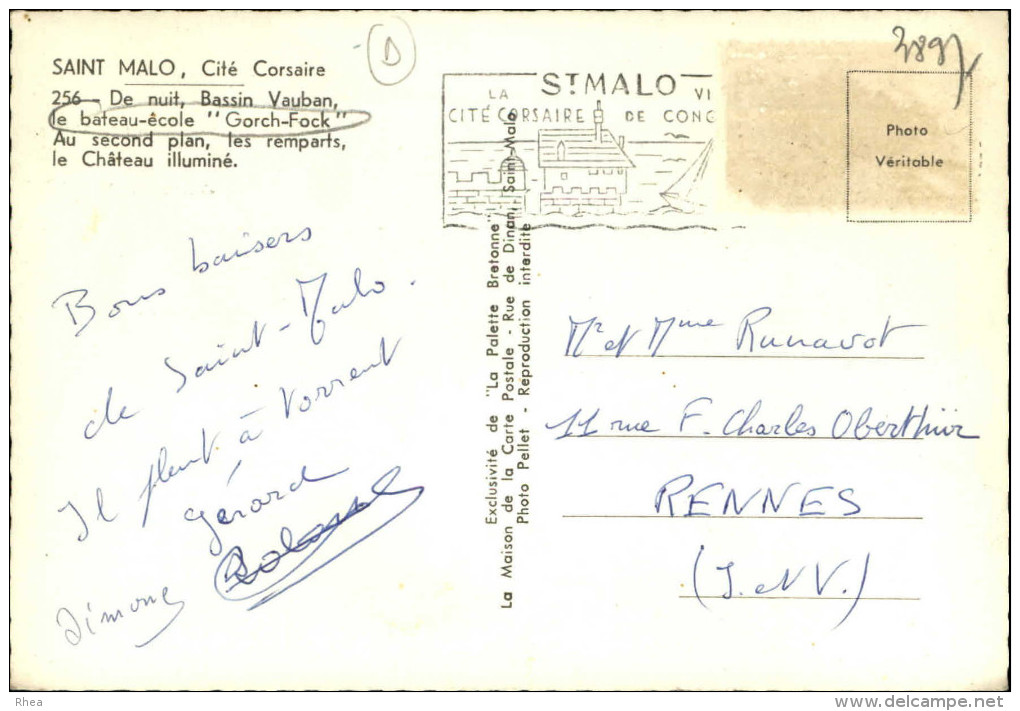 D
3897
SAINT MALO, Cité Corsaire
256 - De nuit, Bassin Vauban,
le bateau-école "Gorch-Fock"
Au second plan, les remparts,
le Château illuminé.
ST MALO
LA VI
CITÉ CORSAIRE DE CONG
Photo
Véritable
Bons baisers
de Saint-Malo.
Il pleut à torrent
Gérard
Simone
Exclusivité de "La Palette Bretonne"
La Maison de la Carte Postale - Rue de Dinan, Saint-Malo
Photo Pellet - Reproduction interdite
Mr et Mme Runavot
11 rue F. Charles Oberthür
RENNES
(I. et V.)
Rhea
www.delcampe.net